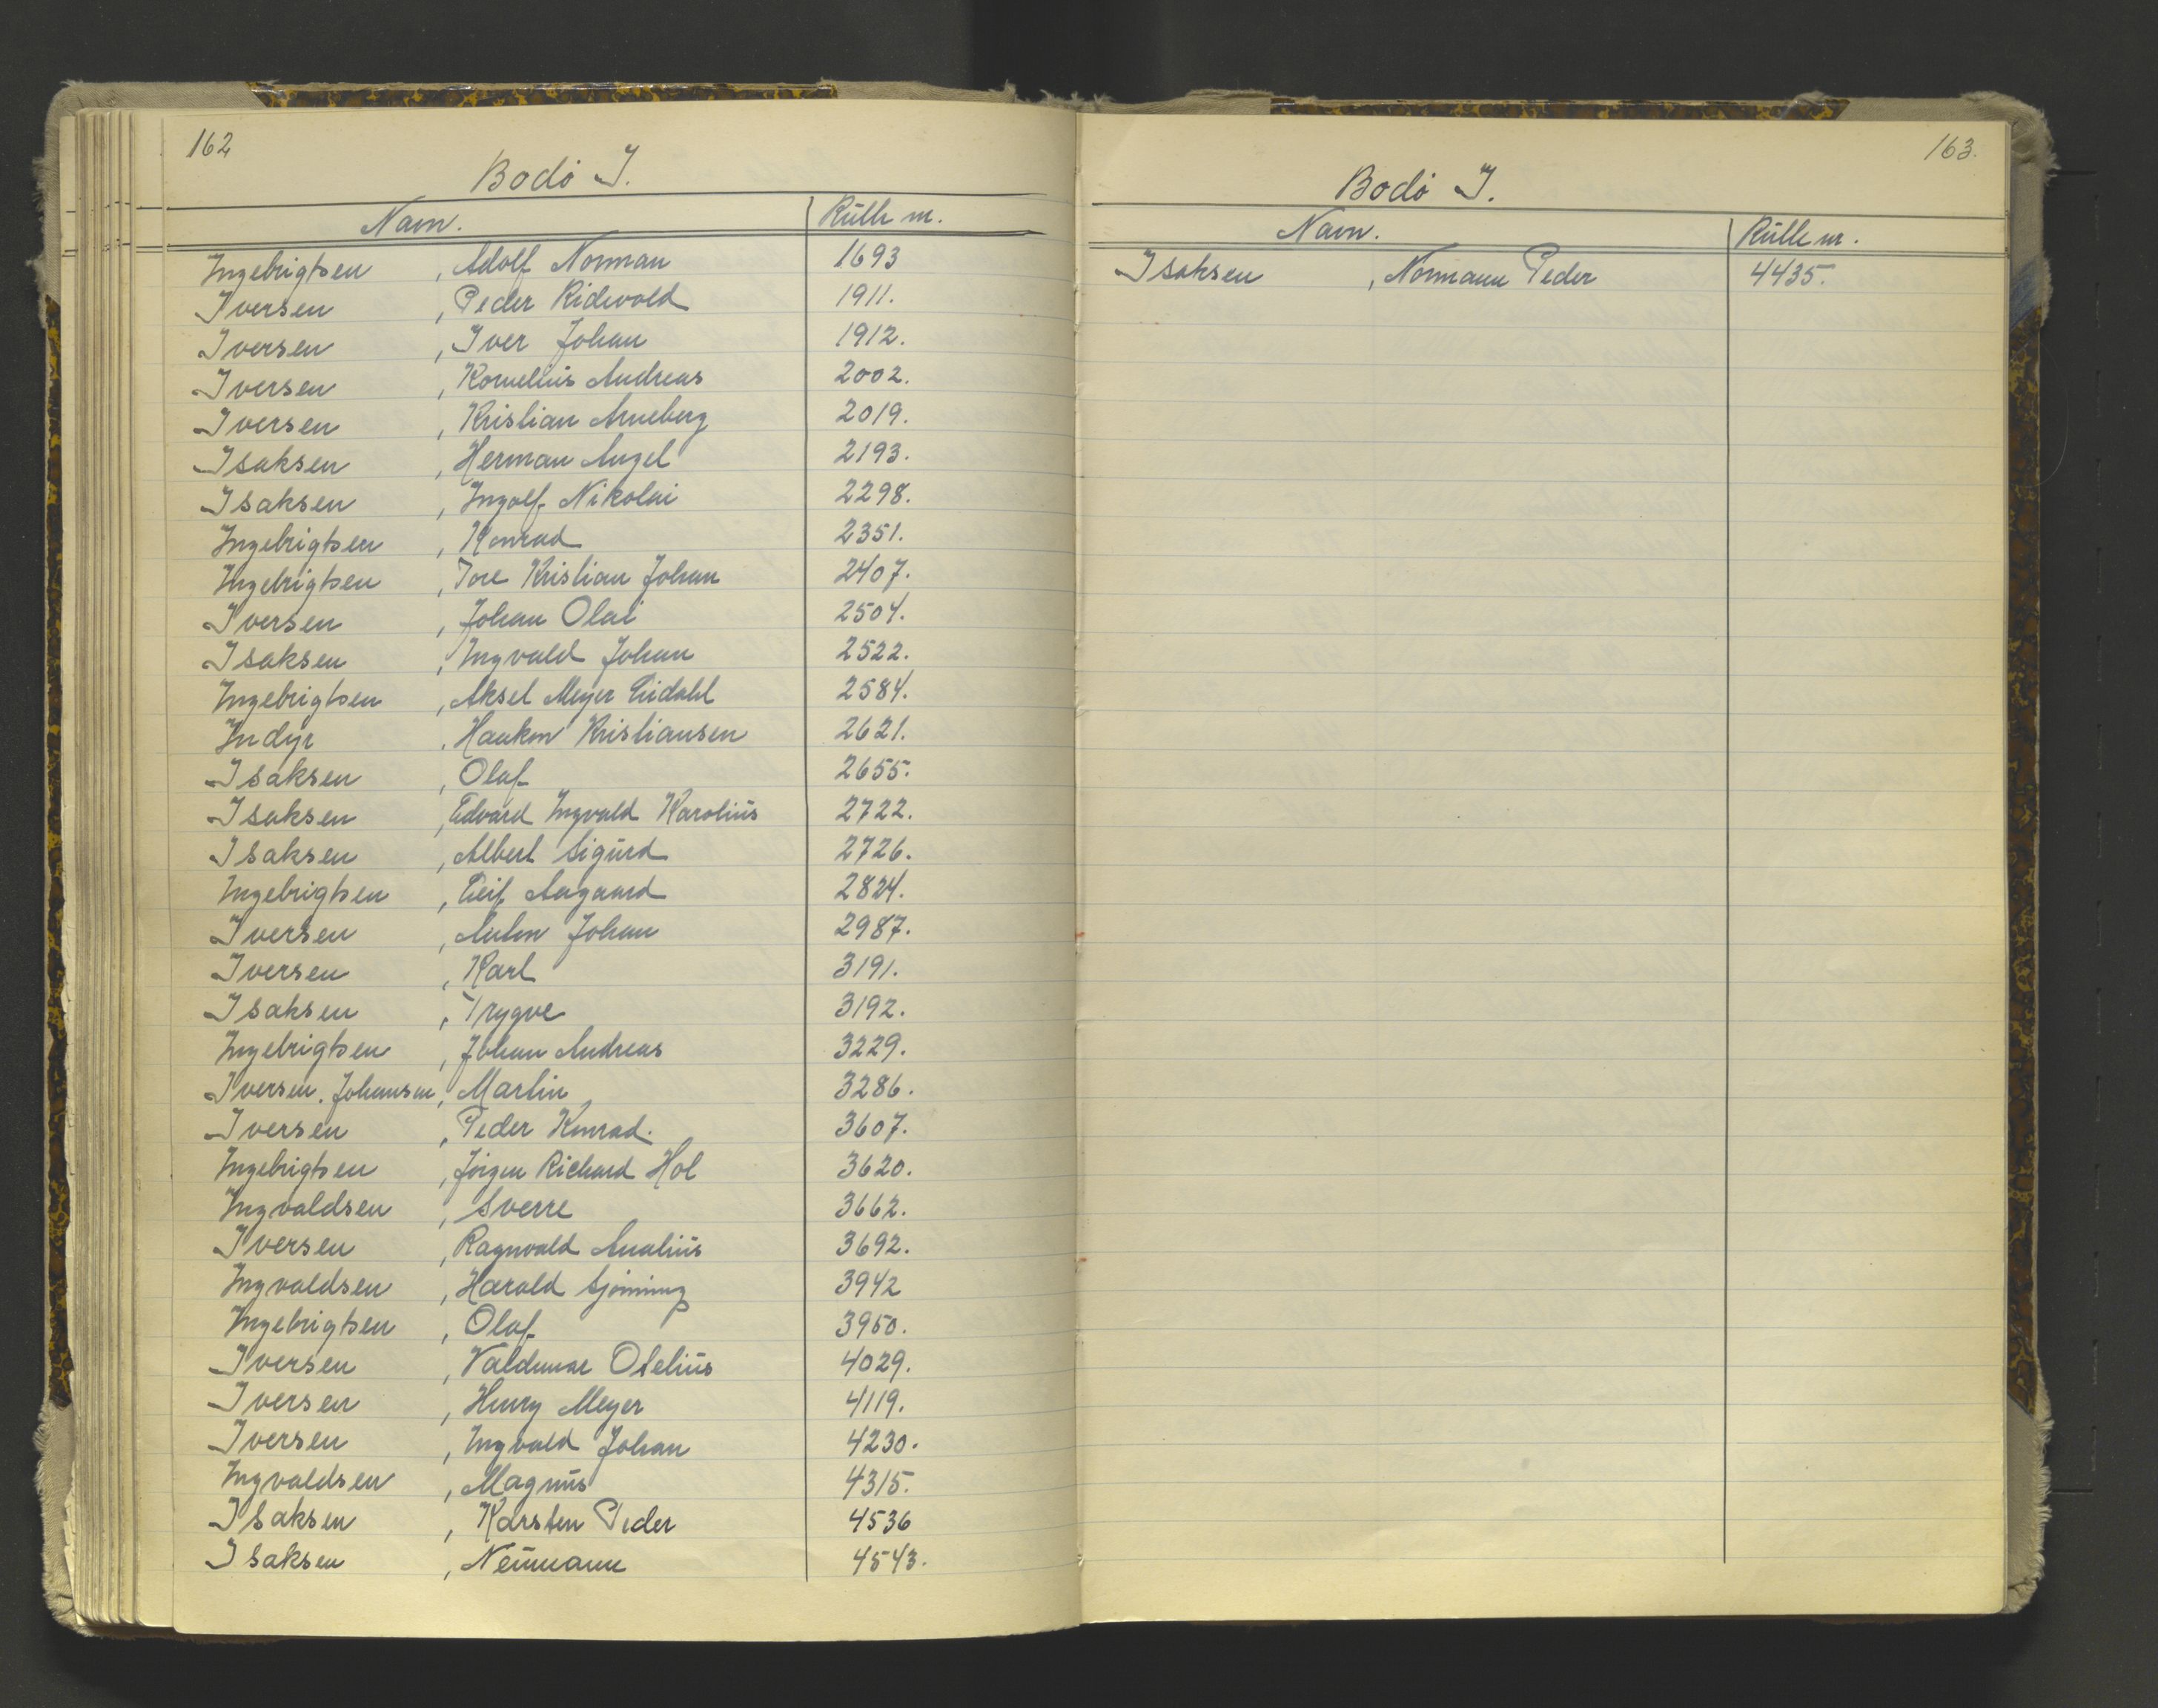 162
Bodø I.
Navn. Rulle nr.
Ingebrigtsen , Adolf Norman 1693
Iversen , Peder Ridevold 1911.
Iversen , Iver Johan 1912.
Iversen , Kornelius Andreas 2002.
Iversen , Kristian Arneberg 2019.
Isaksen , Herman Angel 2193.
Isaksen , Ingolf Nikolai 2298.
Ingebrigtsen , Konrad 2351.
Ingebrigtsen , Tore Kristian Johan 2407.
Iversen , Johan Olai 2504.
Isaksen , Ingvald Johan 2522.
Ingebrigtsen , Aksel Meyer Eidahl 2584.
Indyr , Haakon Kristiansen 2621.
Isaksen , Olaf 2655.
Isaksen , Edvard Ingvald Karolius 2722.
Isaksen , Albert Sigurd 2726.
Ingebrigtsen , Leif Aagaard 2824.
Iversen , Anton Johan 2987.
Iversen , Karl 3191.
Isaksen , Trygve 3192.
Ingebrigtsen , Johan Andreas 3229.
Iversen. Johansen, Martin 3286.
Iversen , Peder Konrad. 3607.
Ingebrigtsen , Jørgen Richard Hol 3620.
Ingvaldsen , Sverre 3662.
Iversen , Ragnvald Analius 3692.
Ingvaldsen , Harald Sjønning 3942
Ingebrigtsen , Olaf 3950.
Iversen , Valdemar Otelius 4029.
Iversen , Henry Meyer 4119.
Iversen , Ingvald Johan 4230.
Ingvaldsen , Magnus 4315.
Isaksen , Karsten Peder 4536
Isaksen , Neumann 4543.
163.
Bodø I.
Navn. Rulle nr.
Isaksen , Normann Peder 4435.